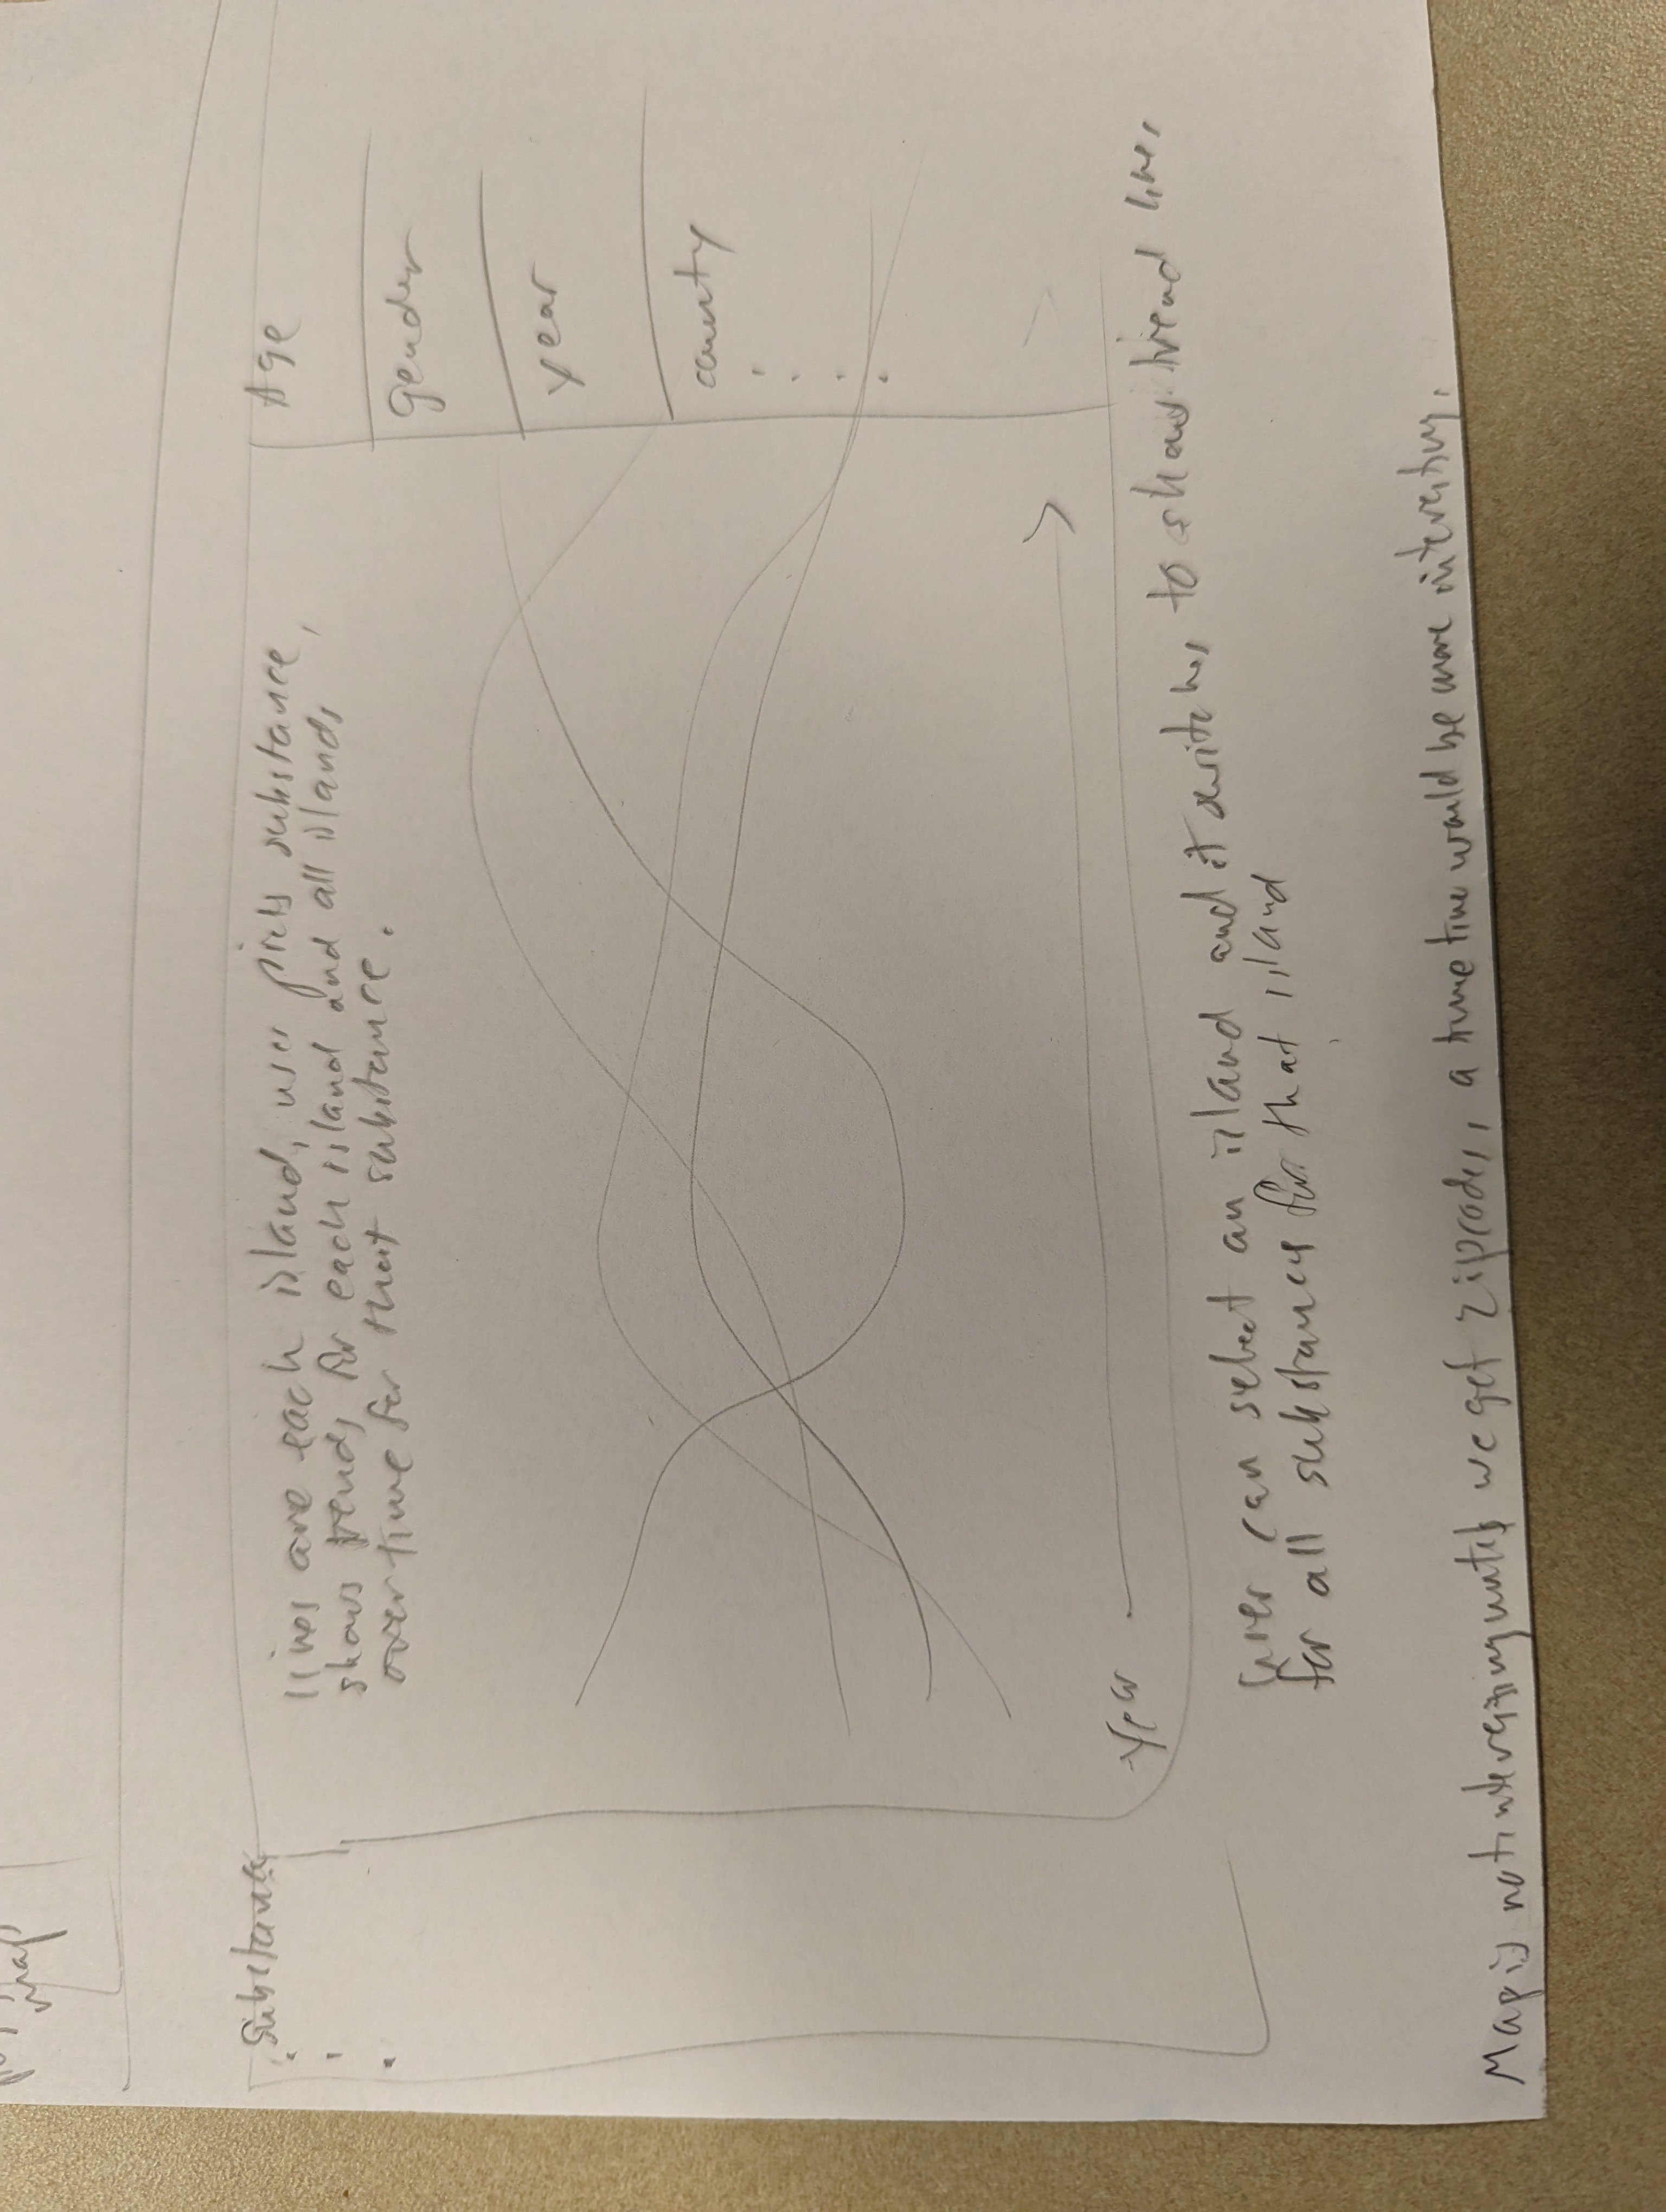 map
Substance
lines are each island, user picks substance,
shows trends for each island and all islands
over time for that substance.
Age
gender
year
county
year
user can select an island and it switches to show trend lines
for all substances for that island
Map is not interesting until we get zipcodes, a time line would be more interesting.